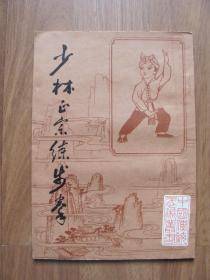 少林正宗练步拳